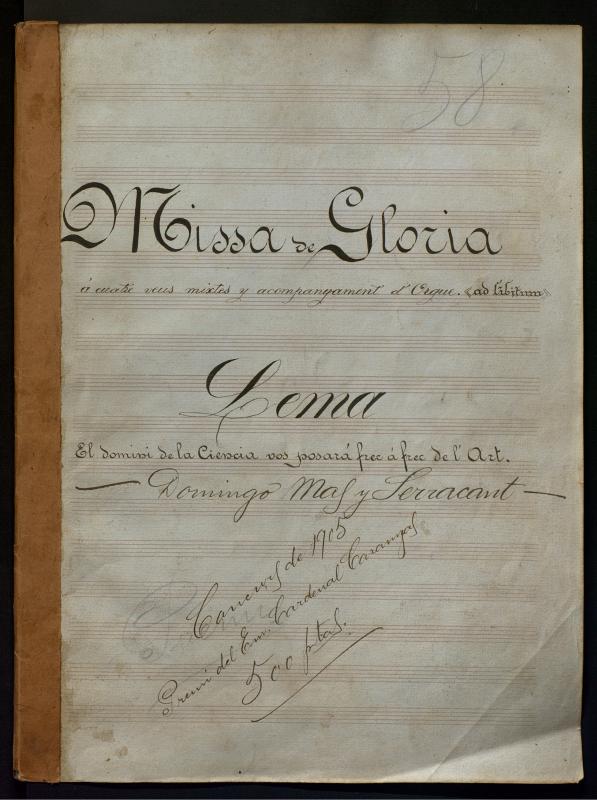 58
Missa de Gloria
á cuatre veus mixtes y acompanyament d'Orgue. «ad líbitum»
Lema
El domini de la Ciencia vos posará frec á frec de l'Art.
— Domingo Mas y Serracant —
Concurs de 1905
Premi del Em. Cardenal Casañas
500 ptas.